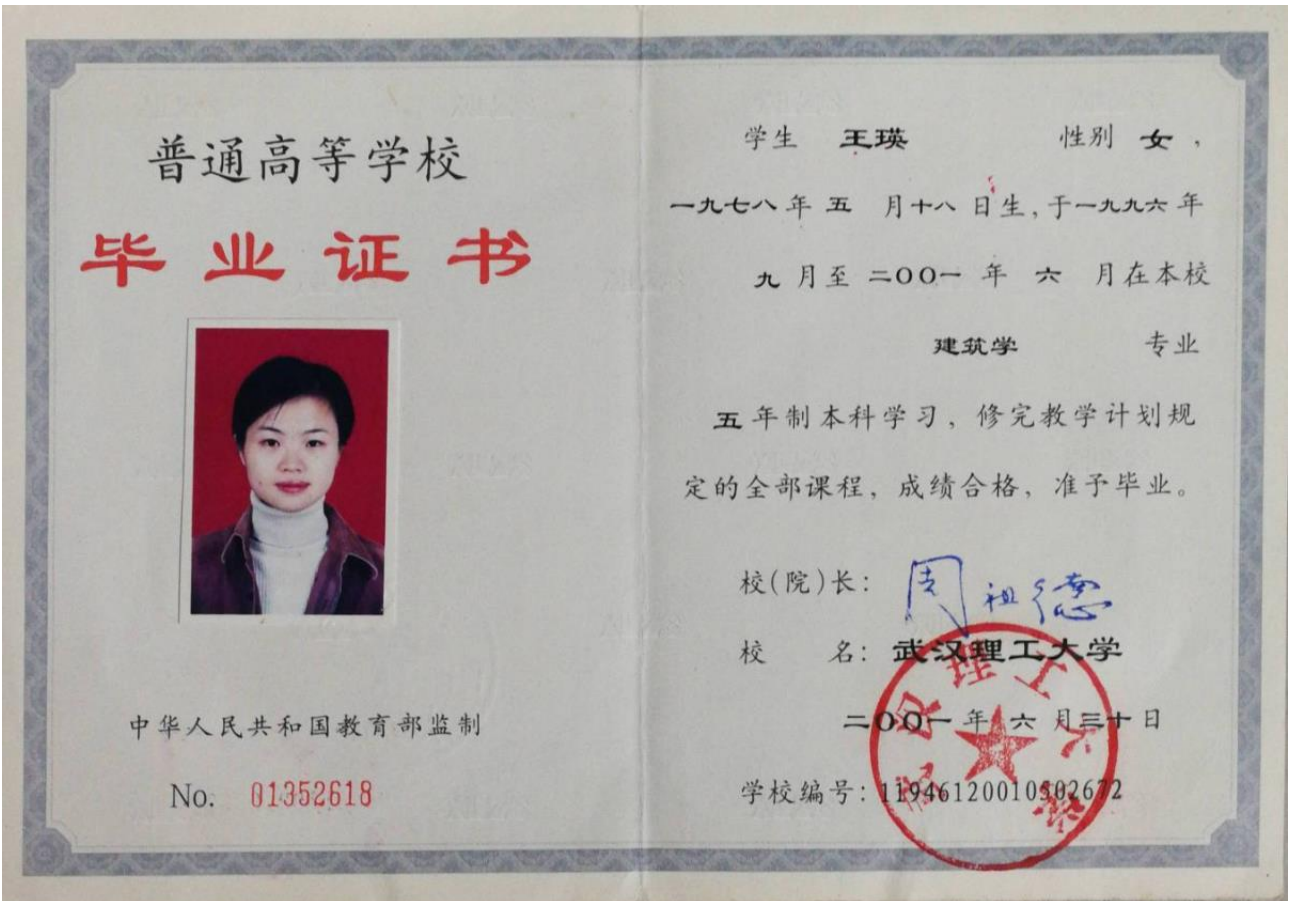 普通高等学校
毕业证书
中华人民共和国教育部监制
No. 01352618
学生 王瑛 性别 女，
一九七八年 五 月十八 日生，于一九九六年
九 月至 二〇〇一 年 六 月在本校
建筑学 专业
五年制本科学习，修完教学计划规
定的全部课程，成绩合格，准予毕业。
校(院)长：周祖德
校 名：武汉理工大学
二〇〇一年 六 月三十日
学校编号：11946120010502672
武汉理工大学